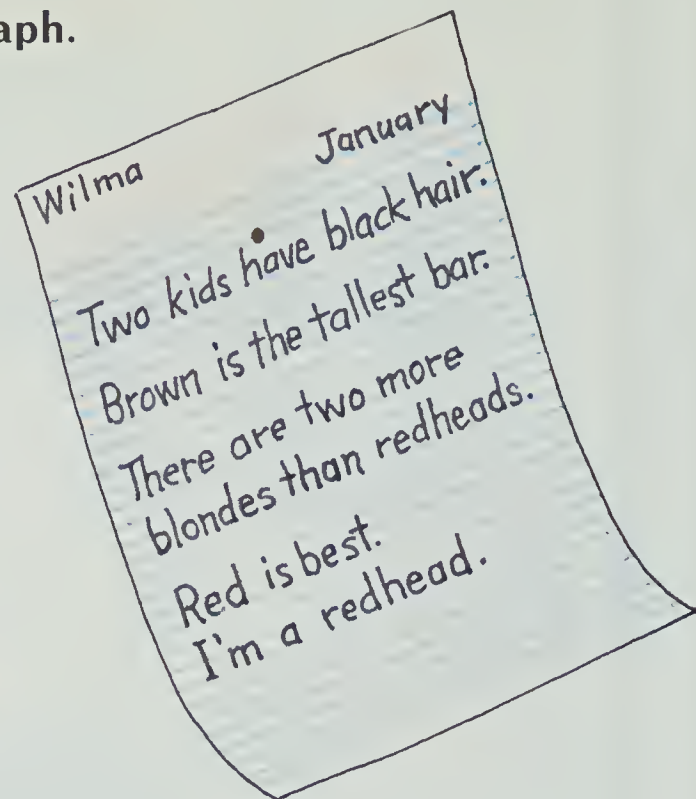 aph.
Wilma January
Two kids have black hair.
Brown is the tallest bar.
There are two more
blondes than redheads.
Red is best.
I'm a redhead.